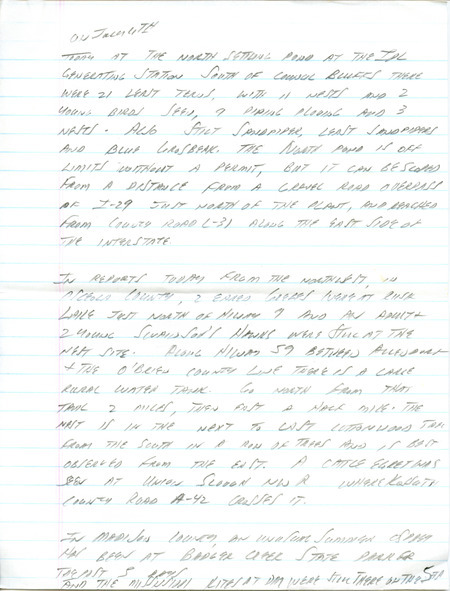 ON JULY 6TH
TODAY AT THE NORTH SETTLING POND AT THE IPL
GENERATING STATION SOUTH OF COUNCIL BLUFFS THERE
WERE 21 LEAST TERNS, WITH 11 NESTS AND 2
YOUNG BIRDS SEEN, 7 PIPING PLOVERS AND 3
NESTS. ALSO STILT SANDPIPER, LEAST SANDPIPERS
AND BLUE GROSBEAK. THE NORTH POND IS OFF
LIMITS WITHOUT A PERMIT, BUT IT CAN BE SCOPED
FROM A DISTANCE FROM A GRAVEL ROAD OVERPASS
OF I-29 JUST NORTH OF THE PLANT, AND REACHED
FROM COUNTY ROAD L-31 ALONG THE EAST SIDE OF
THE INTERSTATE.
IN REPORTS TODAY FROM THE NORTHWEST, IN
OSCEOLA COUNTY, 2 EARED GREBES WERE AT RUSH
LAKE JUST NORTH OF HIWAY 9 AND AN ADULT +
2 YOUNG SWAINSON'S HAWKS WERE STILL AT THE
NEST SITE. ALONG HIWAY 59 BETWEEN ALLENDORF
+ THE O'BRIEN COUNTY LINE THERE IS A LARGE
RURAL WATER TANK. GO NORTH FROM THAT
TANK 2 MILES, THEN EAST A HALF MILE. THE
NEST IS IN THE NEXT TO LAST COTTONWOOD TREE
FROM THE SOUTH IN A ROW OF TREES AND IS BEST
OBSERVED FROM THE EAST. A CATTLE EGRET WAS
SEEN AT UNION SLOUGH NWR WHERE KOSSUTH
COUNTY ROAD A-42 CROSSES IT.
IN MADISON COUNTY, AN UNUSUAL SUMMER OSPREY
HAS BEEN AT BADGER CREEK STATE PARK FOR
THE PAST 3 DAYS
AND THE MISSISSIPPI KITES AT DM WERE STILL THERE ON THE 5TH